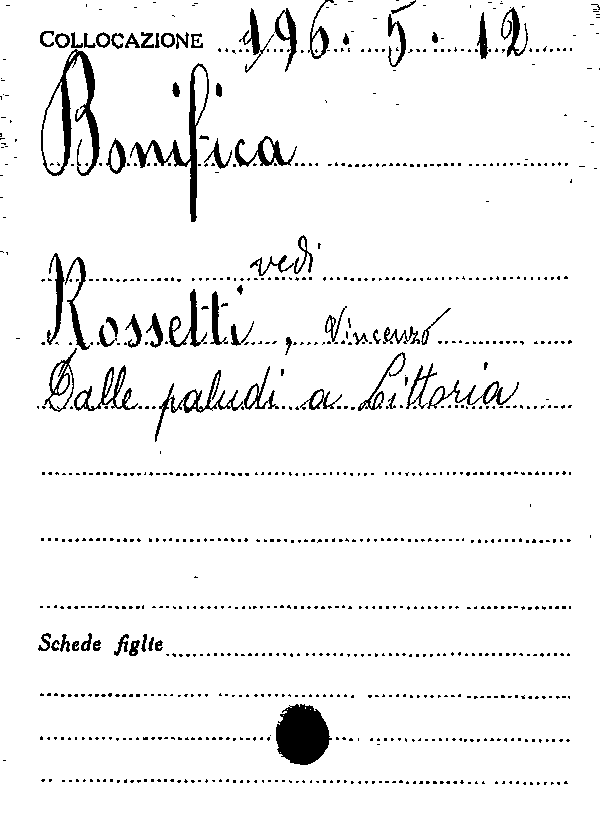 COLLOCAZIONE 196. 5. 12
Bonifica
vedi
Rossetti, Vincenzo
Dalle paludi a Littoria
Schede figlie